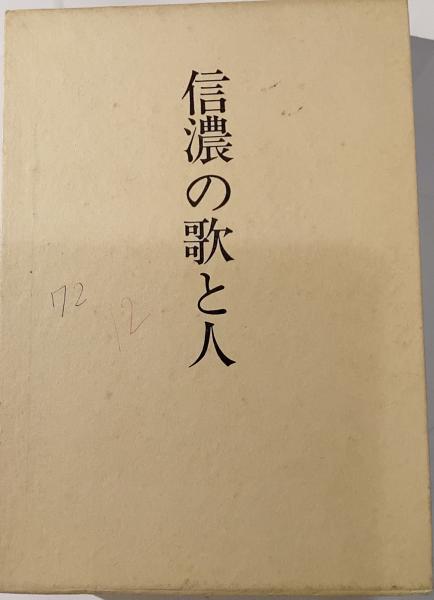 信濃の歌と人
72
12